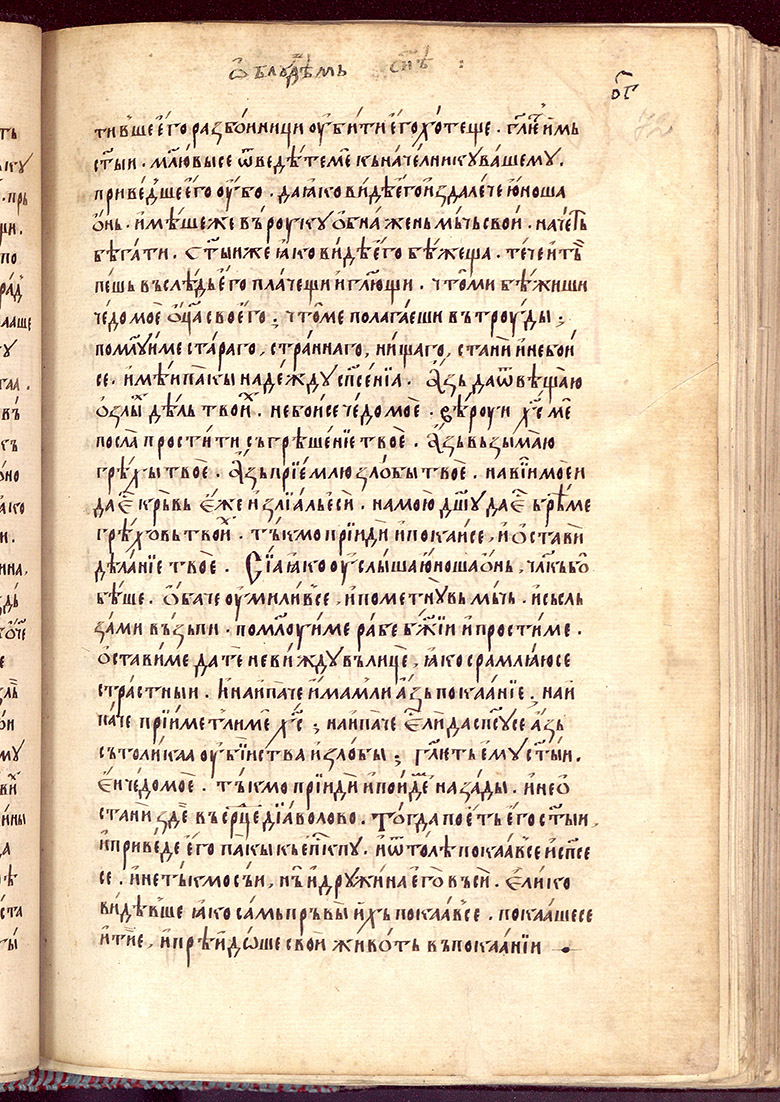 ѽ блу́днѣмь сн҃ѣ :
ѻ҃г
72
ти́вшее҆го разбо́инници оу҆би́ти е҆го хо́теще . гл҃ю́ще и҆мь
ст҃ыи . млⷭ҇ювысе ѿведѣ́теме къначе́лникува́шему .
приве́дшеѐго оу҆́бо . даꙗ҆́ко ви́дѣѐгои҆здалѐче ю҆́ноша
ѻ҆́нь . и҆мѣ́шеже въ роуку ѻ҆бнаже́нь мь́чь сво́и . наче́ть
бѣ́гати . Ст҃ыиже ꙗ҆́ко ви́дѣѐго бѣ́жеща . тѐчеи҆ть̀
пѣшь въслѣ́дьѐго пла́чещи и҆гл҃ющи . что̀ми бѣ́жиши
че́домоѐ ѻ҆ц҃а сво́его ; что̀ме полага́еши въ троу́ды ;
помл҃уиме ста́раго , стра́ннаго , ни́щаго , ста́ни и҆небо́и
се . и҆мѣ́ипа́кы наде́жду сп҃се́нїа . А҆́зь даѿвѣща́ю
ѻ҆злы́хь дѣ́ль твои́хь . небо́исе че́домоѐ . вѣ́роуи х҃с мѐ
посла̀ прости́ти съгрѣше́нїе твоѐ . А҆́зьвьзыма́ю
грѣ́хы твоѐ . А҆́зь прїе́млю зло́бы твоѐ . навїи҆мо́еи
да е҆ⷭ҇ крь́вь е҆́же и҆злїа́льѐси . на мою̀ дш҃у да е҆ⷭ҇ брѣ́ме
грѣ́ховь тво́ихь . тъ́кмо прїидѝ и҆пока́исе , и҆ѻ҆ста́ви
дѣла́нїе твоѐ . Сїа̀ꙗ҆́ко оу҆слы́шаю҆́ношаѻ҆́нь , чл҃къбо̀
бѣ́ше . Ѻ҆ба́че оу҆мили́всe , и҆помет́нувь мь́чь . и҆сьсль
за́ми възъпи . помл҃оу́име ра́бе бж҃їи и҆прости́ме .
ѻ҆ста́виме да тѐ неви́жду въ лицѐ , ꙗ҆́ко срамлꙗ́юсе
стра́стныи . И҆наи҆па́че и҆ма́мли а҆́зь покаа́нїе , наи҆
па́че прїи́метлиме х҃с ; наи҆па́че е҆ли̏ да сп҃су́се а҆́зь
сътоли́каа оу҆бїи́ства и҆зло́бы ; гл҃еть е҆му ст҃ыи .
е҆́и че́домоѐ . тъ́кмо прїидѝ и҆пои́дѝ наза́ды . и҆нео
ста́ни здѐ въ ср҃це дїа́волово . Тогда поѐть ѐго ст҃ыи ,
и҆приве́де ѐго па́кы къ еп҃кпу . и҆ѿто́лѣ покаа́всe и҆сп҃се
се . и҆нетъ́кмо съи , нъ̏ и҆дружи́на е҆го въсѝ . е҆ли́ко
ви́дѣ́вше ꙗ҆́ко са́мь пръ́вы и҆хь покаа́всe . покаа́шесе
и҆тїѐ , и҆прѣи҆до́ше сво́и живо́ть въ покаа́нїи .